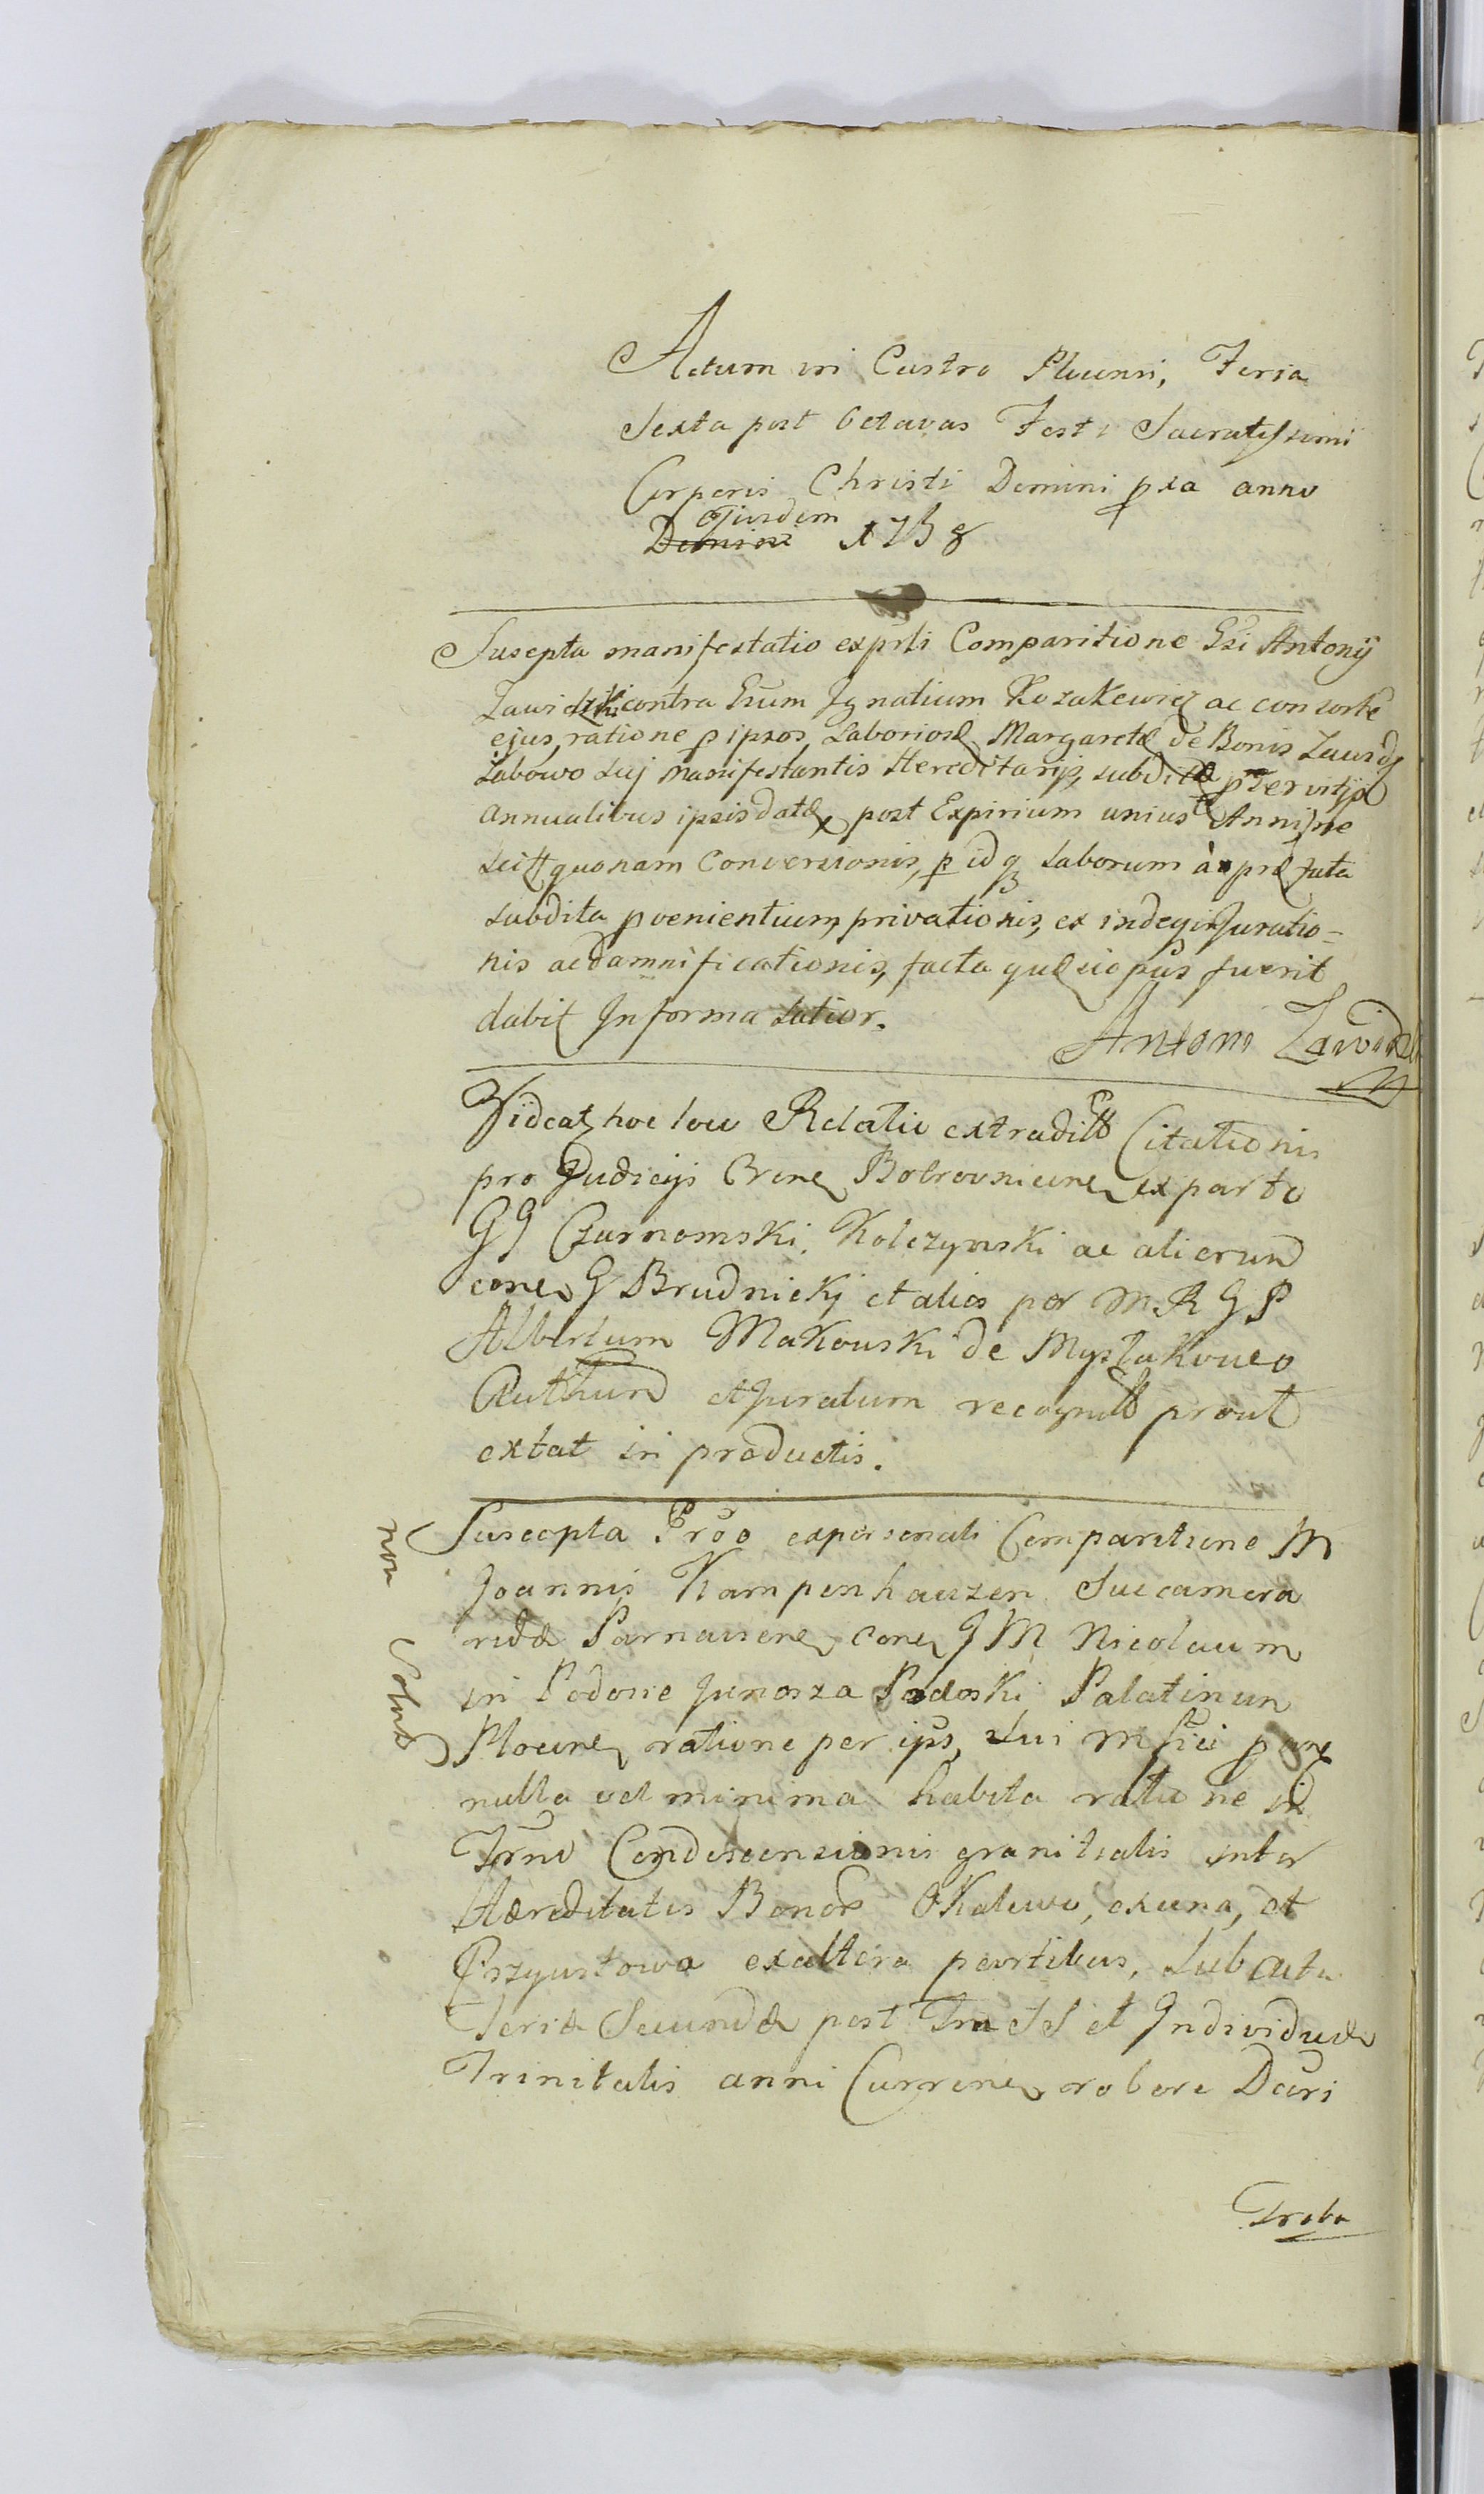 Actum in Castro Plocensi, Feria
Sexta post Octavas Festi Sacratissimi
Corporis Christi Domini pxa anno
ejusdem
Domini 1758
Suscepta manifestatio exprli Comparitione Gsi Antonij
Zawidzki contra Gsum Ignatium Kozakewicz ac consorte
ejus, ratione p ipsos, Laboriosæ Margaretæ de Bonis Zawidz
Labowo sui manifestantis Hereditarijs, subditæ p servitijs
annualibus ipsis datæ, post Expirium unius Anni, ne
scitt quonam Conversionis, p idq laborum à præfata
subdita pvenientium, privationis, ex indeq injuratio=
nis ac damnificationis, facta quæ si opus fuerit
dabit Informa latior.
Antoni Zawidzk
Videat hoc loco Relatio extradittt Citationis
pro Judicijs Crenę Bobrovnicenę ex parte
GG Czarnomski, Kolczynski ac aliorum
conę G Brudnickj et alios per MRGP
Albertum Makouski de Mystkoueo
Authum et juratum recognitt prout
extat in productis.
non Solut
Suscepta Prõo ex personali Comparitione M
Joannis Kampenhauzen Succamera
ridæ Parnavienę conę JM Nicolaum
in Podosie Junosza Podoski Palatinum
Plocenę ratione per ips, sui Msti p
nulla vel minima habita ratione in
Trno Condescensionis granitialis inter
Hæreditatis Bonor Okalewo, ex una, et
Przyustowa ex altera partibus, sub actu
Feriæ Secundæ post Fm SS et Individuæ
Trinitatis anni Currenę robore Dcri
Traba